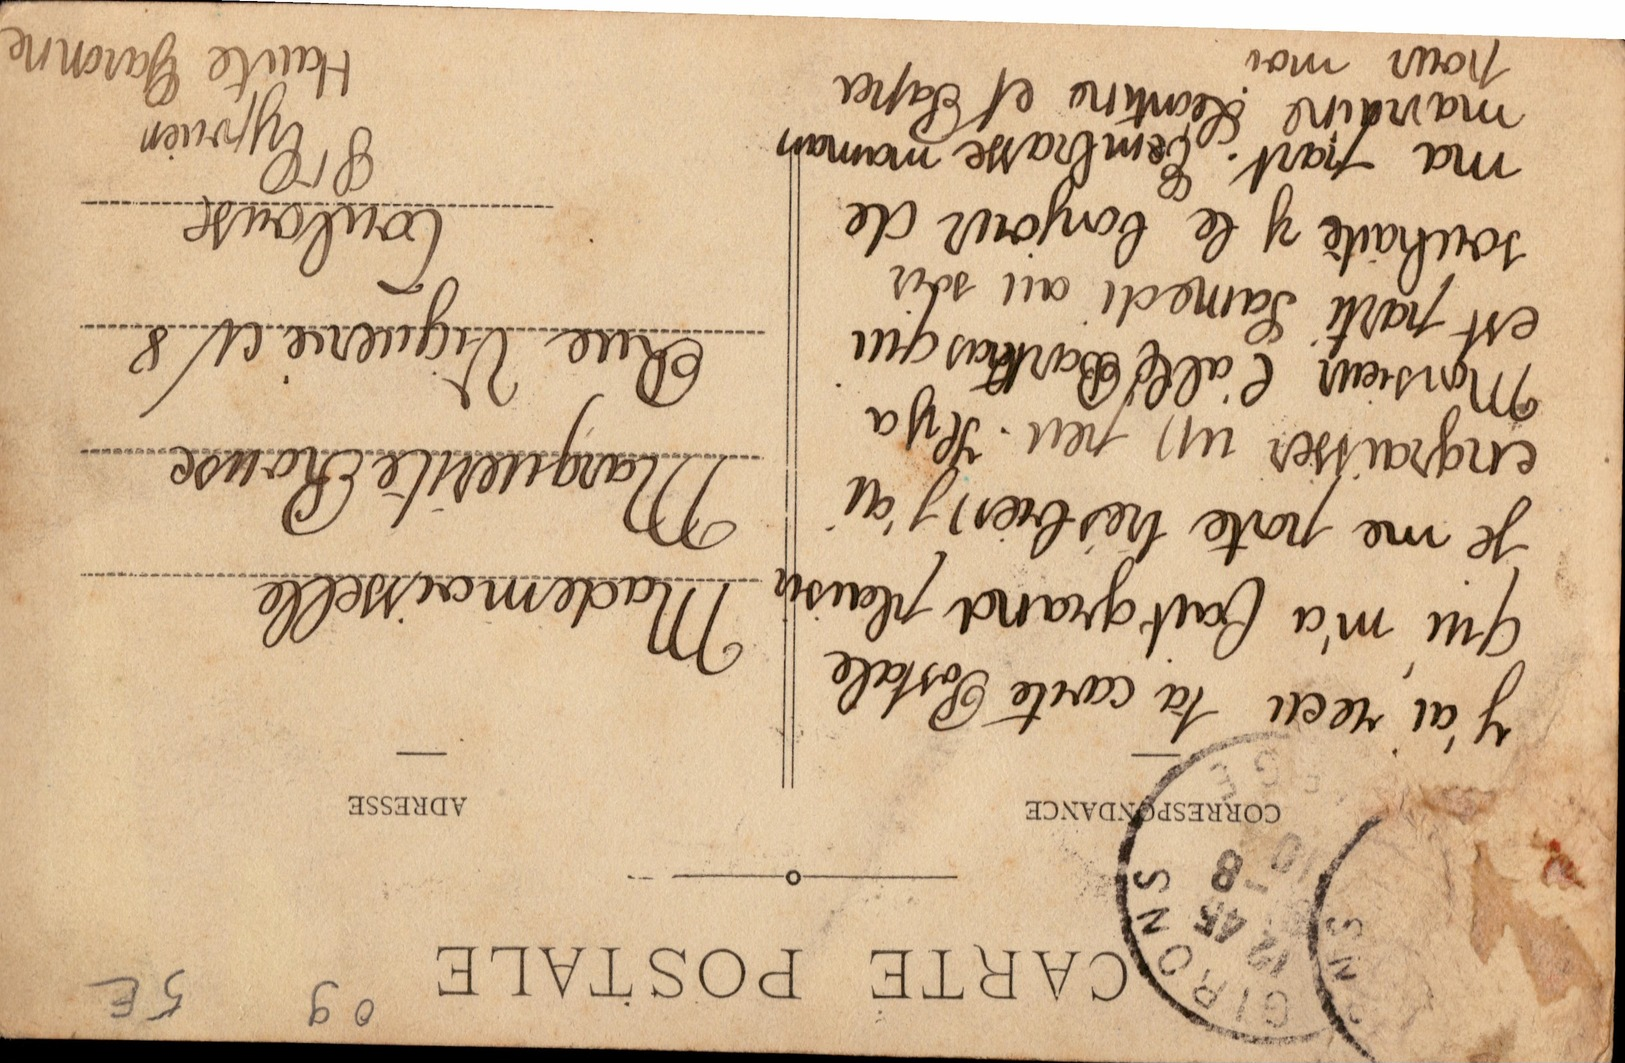 CARTE POSTALE
CORRESPONDANCE
ADRESSE
GIRONS
12 45
8
10
y'ai recu ta carte Postale
qui m'a fait grand plaisir
je me porte très bien j'ai
engraisser un peu. Il y a
Monsieur l'abbé qui
est parti Samedi au soir
souhaite y le bonjour de
ma part. Embrasse maman
marraine Léontine et Papa
pour moi
Mademoisselle
Marguerite Rouse
Rue Viguerie 8
Toulouse
St Cyprien
Haute Garonne
09
5E